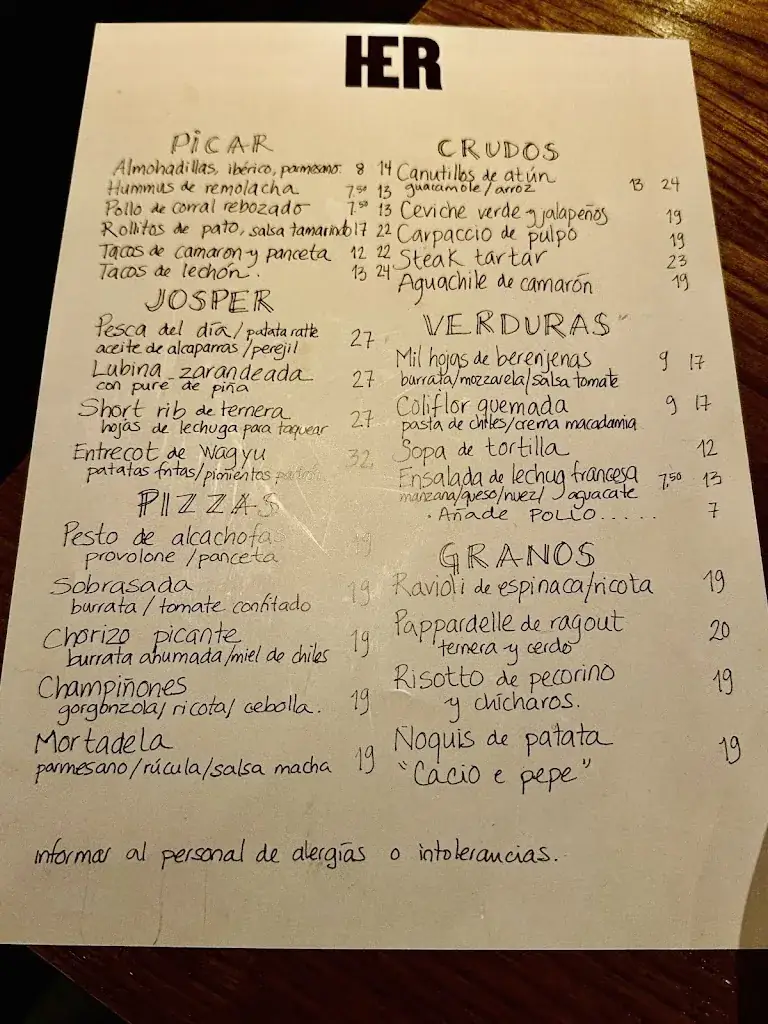 HER
PICAR
Almohadillas, ibérico, parmesano. 8 14
Hummus de remolacha 7,50 13
Pollo de corral rebozado 7.50 13
Rollitos de pato, salsa tamarindo 17 22
Tacos de camaron y panceta 12 22
Tacos de lechón. 13 24
JOSPER
Pesca del día/patata ratte 27
aceite de alcaparras/perejil
Lubina zarandeada 27
con puré de piña
Short rib de ternera 27
hojas de lechuga para taquear
Entrecot de wagyu 32
patatas fritas/pimientos
PIZZAS
Pesto de alcachofa 19
provolone/panceta
Sobrasada 19
burrata/tomate confitado
Chorizo picante 19
burrata ahumada/miel de chiles
Champiñones 19
gorgonzola/ricota/cebolla.
Mortadela 19
parmesano/rúcula/salsa macha
CRUDOS
Canutillos de atún
guacamole/arroz 13 24
Ceviche verde y jalapeños 19
Carpaccio de pulpo 19
Steak tartar 23
Aguachile de camarón 19
VERDURAS
Mil hojas de berenjenas 9 17
burrata/mozzarela/salsa tomate
Coliflor quemada 9 17
pasta de chiles/crema macadamia
Sopa de tortilla 12
Ensalada de lechug francesa 7,50 13
manzana/queso/nuez/aguacate
· Añade POLLO..... 7
GRANOS
Ravioli de espinaca/ricota 19
Pappardelle de ragout 20
ternera y cerdo
Risotto de pecorino 19
y chícharos.
Ñoquis de patata 19
"Cacio e pepe"
informar al personal de alergías o intolerancias.